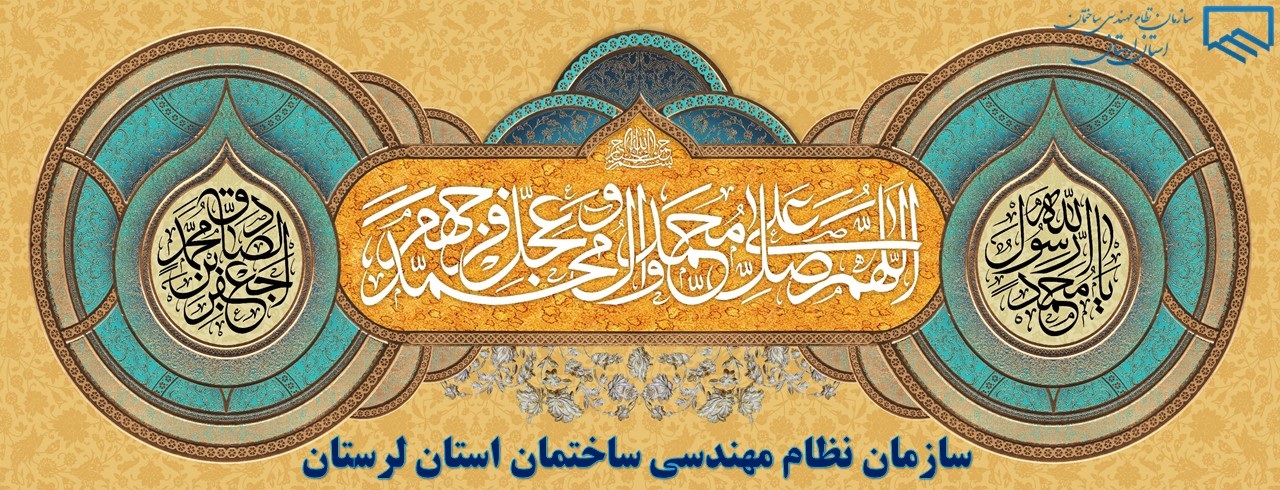 سازمان نظام مهندسی ساختمان
استان لرستان
بسم الله الرحمن الرحیم
اللهم صل علی محمد وآل محمد وعجل فرجهم
یا محمد رسول الله
جعفر بن محمد الصادق
سازمان نظام مهندسی ساختمان استان لرستان